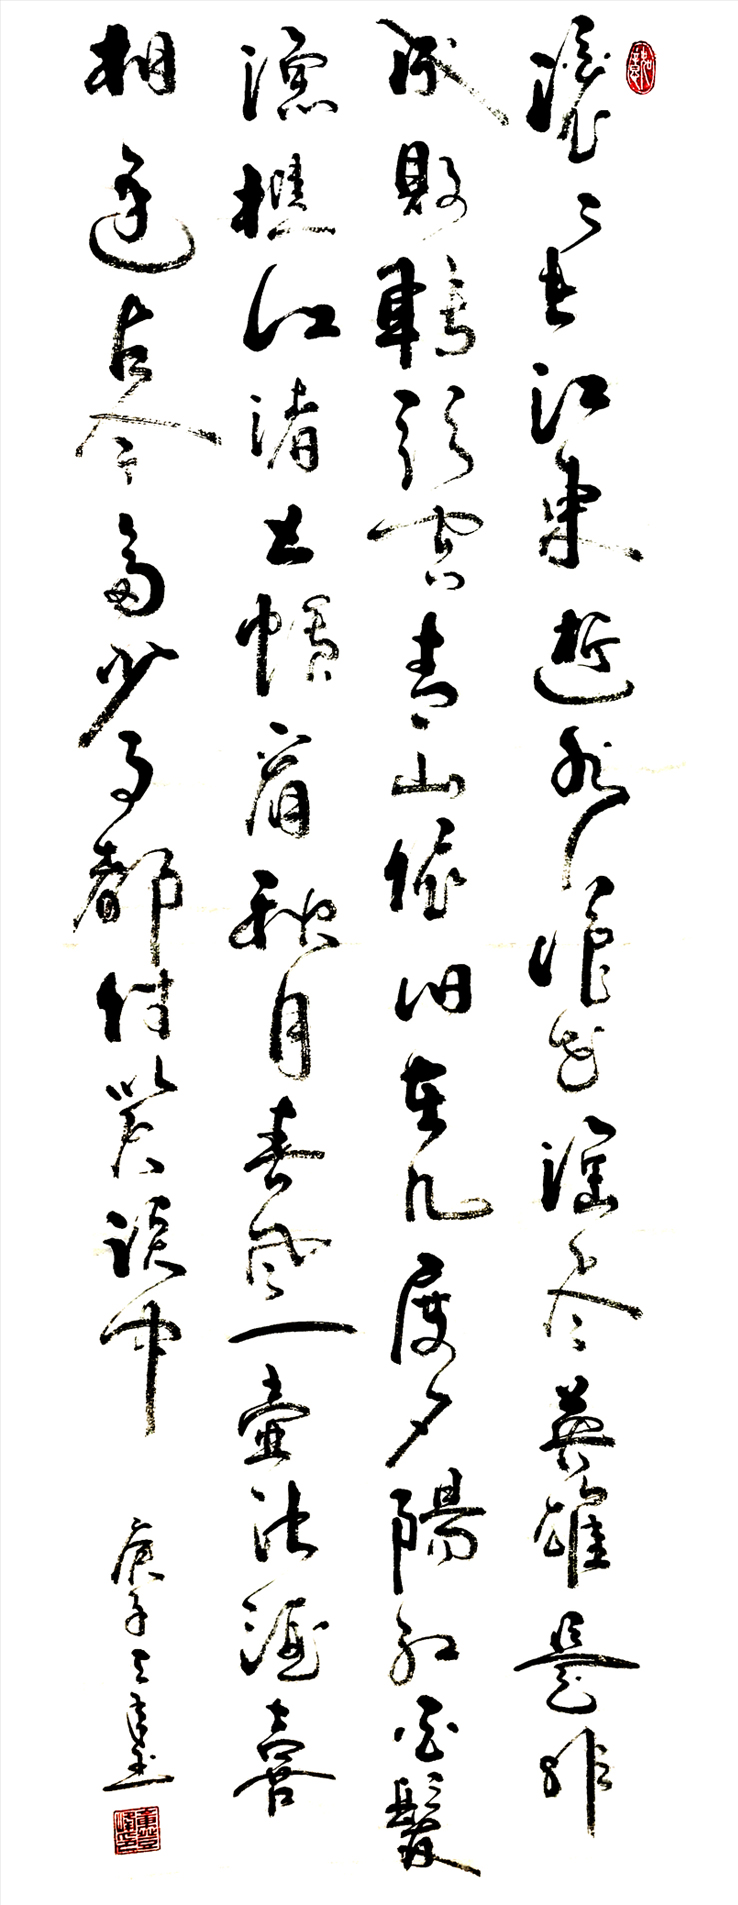 滚〻长江東逝水浪花淘尽英雄是非
成败转头空青山依旧在几度夕陽红白髮
渔樵江渚上惯看秋月春风一壶浊酒喜
相逢古今多少事都付笑谈中
庚子